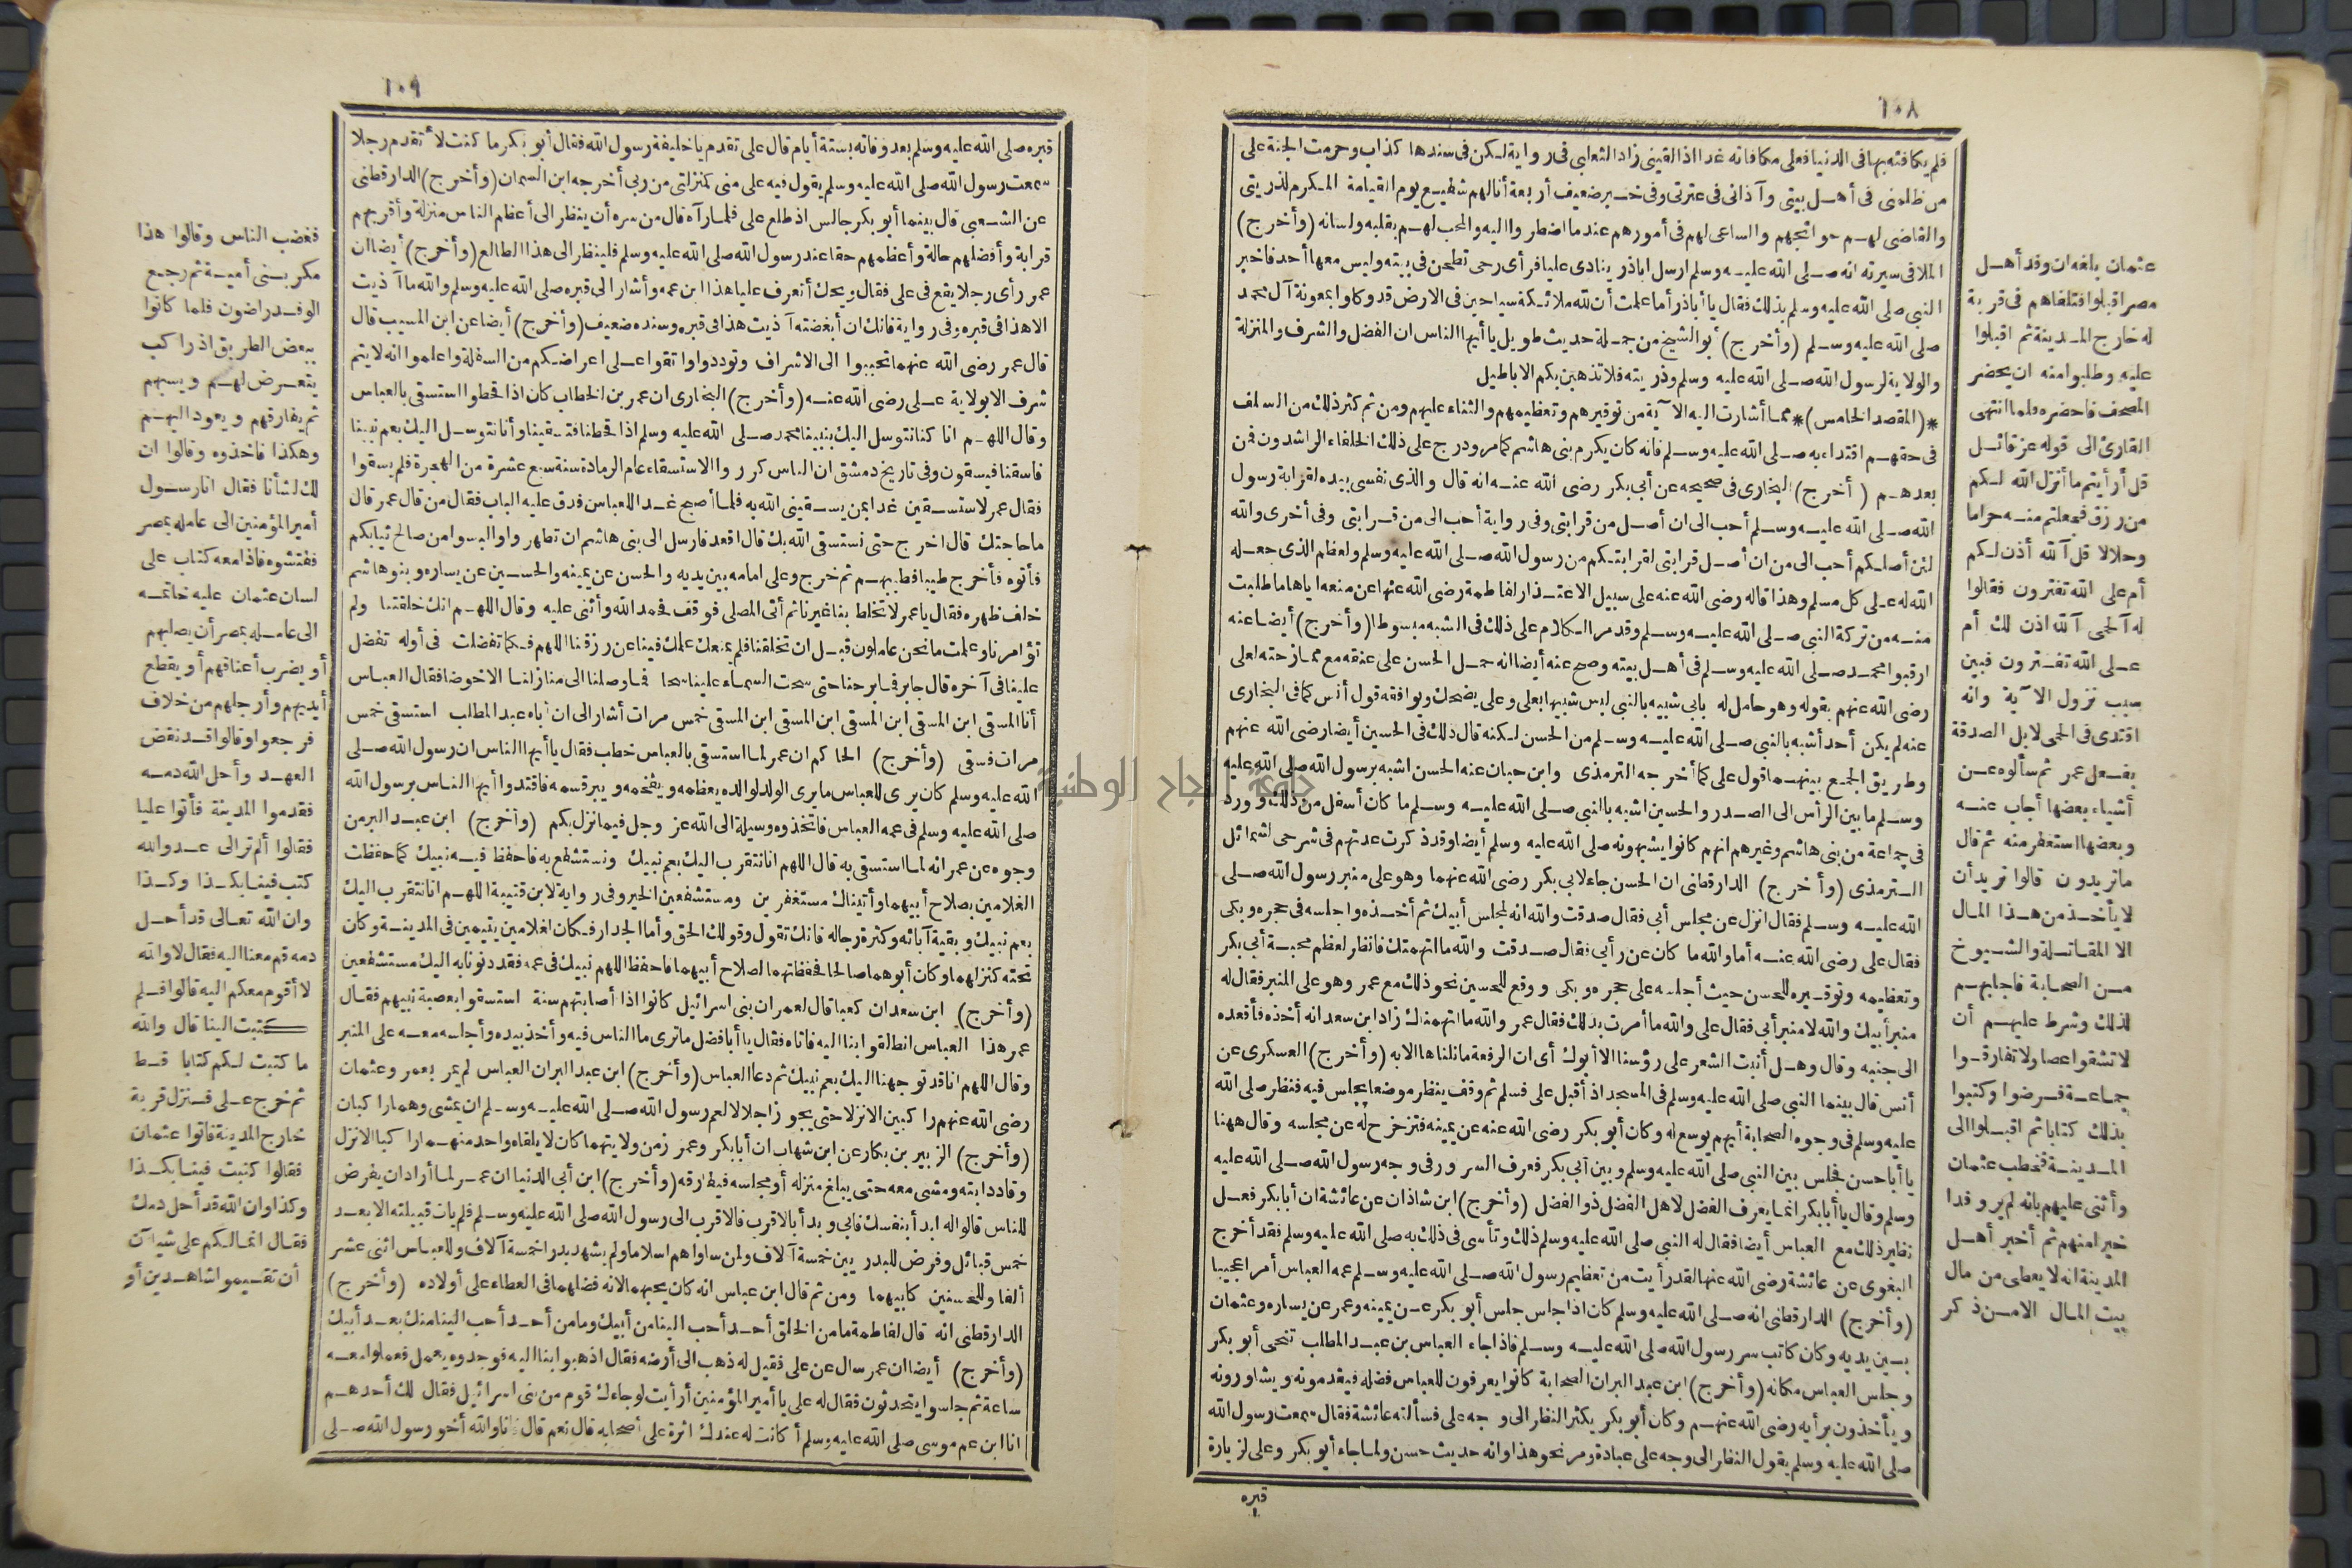 ١٠٨
فلم يكافئه بها فى الدنيا فعلى مكافاته غدا اذا لقينى زاد الثعلبى فى رواية لكن فى سندها كذاب وحرمت الجنة على
من ظلمنى فى أهل بيتى وآذانى فى عترتى وفى خبر ضعيف أربعة أنا لهم شفيع يوم القيامة المكرم لذريتى
والقاضى لهم حوائجهم والساعى لهم فى أمورهم عندما اضطروا اليه والمحب لهم بقلبه ولسانه (وأخرج)
الملا فى سيرته انه صلى الله عليه وسلم ارسل اباذر ينادى عليا فرأى رحى تطحن فى بيته وليس معها أحد فاخبر
النبى صلى الله عليه وسلم بذلك فقال يا أباذر أما علمت أن لله ملائكة سياحين فى الارض قد وكلوا بمعونة آل محمد
صلى الله عليه وسلم (وأخرج) أبو الشيخ من جملة حديث طويل يا أيها الناس ان الفضل والشرف والمنزلة
والولاية لرسول الله صلى الله عليه وسلم وذريته فلا تذهبن بكم الاباطيل
*(المقصد الخامس)* مما أشارت اليه الآية من توقيرهم وتعظيمهم والثناء عليهم ومن ثم كثر ذلك من السلف
فى حقهم اقتداء به صلى الله عليه وسلم فانه كان يكرم بنى هاشم كما مر ودرج على ذلك الخلفاء الراشدون فمن
بعدهم (أخرج) البخارى فى صحيحه عن أبى بكر رضى الله عنه انه قال والذى نفسى بيده لقرابة رسول
الله صلى الله عليه وسلم أحب الى ان أصل من قرابتى وفى رواية أحب الى من قرابتى وفى أخرى والله
لئن أصلكم أحب الى من ان أصل قرابتى لقرابتكم من رسول الله صلى الله عليه وسلم ولعظم الذى جعله
الله له على كل مسلم وهذا قاله رضى الله عنه على سبيل الاعتذار لفاطمة رضى الله عنها عن منعه اياها ما طلبت
منه من تركة النبى صلى الله عليه وسلم وقد مر الكلام على ذلك فى الشبه مبسوطا (وأخرج) أيضا عنه
ارقبوا محمدا صلى الله عليه وسلم فى أهل بيته وصح عنه أيضا انه حمل الحسن على عنقه مع ممازحته لعلى
رضى الله عنهم بقوله وهو حامل له بابى شبيه بالنبى ليس شبيها بعلى وعلى يضحك ويوافقه قول أنس كما فى البخارى
عنه لم يكن أحد أشبه بالنبى صلى الله عليه وسلم من الحسن لكنه قال ذلك فى الحسين أيضا رضى الله عنهم
وطريق الجمع بينهما قول على كما أخرجه الترمذى وابن حبان عنه الحسن اشبه برسول الله صلى الله عليه
وسلم ما بين الرأس الى الصدر والحسين اشبه بالنبى صلى الله عليه وسلم ما كان أسفل من ذلك وورد
فى جماعة من بنى هاشم وغيرهم انهم كانوا يشبهونه صلى الله عليه وسلم أيضا وقد ذكرت عدتهم فى شرحى لشمائل
الترمذى (وأخرج) الدارقطنى ان الحسن جاء لابى بكر رضى الله عنهما وهو على منبر رسول الله صلى
الله عليه وسلم فقال انزل عن مجلس أبى فقال صدقت والله انه لمجلس أبيك ثم أخذه واجلسه فى حجره وبكى
فقال على رضى الله عنه أما والله ما كان عن رأيى فقال صدقت والله ما اتهمتك فانظر لعظم محبة أبى بكر
وتعظيمه وتوقيره للحسن حيث أجلسه على حجره وبكى ووقع للحسين نحو ذلك مع عمر وهو على المنبر فقال له
منبر أبيك والله لا منبر أبى فقال على والله ما أمرت بذلك فقال عمر والله ما اتهمناك زاد ابن سعد انه أخذه فأقعده
الى جنبه وقال وهل أنبت الشعر على رؤسنا الا أبوك أى ان الرفعة ما نلناها الا به (وأخرج) العسكرى عن
أنس قال بينما النبى صلى الله عليه وسلم فى المسجد اذ أقبل على فسلم ثم وقف ينظر موضعا يجلس فيه فنظر صلى الله
عليه وسلم فى وجوه الصحابة أيهم يوسع له وكان أبو بكر رضى الله عنه عن يمينه فتزحزح له عن مجلسه وقال ههنا
يا أبا حسن فجلس بين النبى صلى الله عليه وسلم وبين أبى بكر فعرف السرور فى وجه رسول الله صلى الله عليه
وسلم وقال يا أبا بكر انما يعرف الفضل لاهل الفضل ذو الفضل (وأخرج) ابن شاذان عن عائشة ان أبا بكر فعل
نظير ذلك مع العباس أيضا فقال له النبى صلى الله عليه وسلم ذلك وتأسى فى ذلك به صلى الله عليه وسلم فقد أخرج
البغوى عن عائشة رضى الله عنها لقد رأيت من تعظيم رسول الله صلى الله عليه وسلم عمه العباس أمرا عجيبا
(وأخرج) الدارقطنى انه صلى الله عليه وسلم كان اذا جلس جلس أبو بكر عن يمينه وعمر عن يساره وعثمان
بين يديه وكان كاتب سر رسول الله صلى الله عليه وسلم فاذا جاء العباس بن عبد المطلب تنحى أبو بكر
وجلس العباس مكانه (وأخرج) ابن عبد البر ان الصحابة كانوا يعرفون للعباس فضله فيقدمونه ويشاورونه
ويأخذون برأيه رضى الله عنهم وكان أبو بكر يكثر النظر الى وجه على فسألته عائشة فقال سمعت رسول الله
صلى الله عليه وسلم يقول النظر الى وجه على عبادة ومر نحو هذا وانه حديث حسن ولما جاء أبو بكر وعلى لزيارة
قبره
عثمان بلغه ان وفد أهل
مصر اقبلوا فتلقاهم فى قرية
له خارج المدينة ثم اقبلوا
عليه وطلبوا منه ان يحضر
المصحف فاحضره فلما انتهى
القارئ الى قوله عز قائل
قل أرأيتم ما أنزل الله لكم
من رزق فجعلتم منه حراما
وحلالا قل آلله أذن لكم
أم على الله تفترون فقالوا
له آلحمى آلله اذن لك أم
على الله تفترون فبين
سبب نزول الآية وانه
اقتدى فى الحمى لابل الصدقة
بفعل عمر ثم سألوه عن
أشياء بعضها أجاب عنه
وبعضها استغفر منه ثم قال
ما تريدون قالوا نريد أن
لا يأخذ من هذا المال
الا المقاتلة والشيوخ
من الصحابة فاجابهم
لذلك وشرط عليهم أن
لا تشقوا عصا ولا تفارقوا
جماعة فرضوا وكتبوا
بذلك كتابا ثم اقبلوا الى
المدينة فخطب عثمان
وأثنى عليهم بانه لم ير وفدا
خيرا منهم ثم أخبر أهل
المدينة انه لا يعطى من مال
بيت المال الا من ذكر
١٠٩
قبره صلى الله عليه وسلم بعد وفاته بستة أيام قال على تقدم يا خليفة رسول الله فقال أبو بكر ما كنت لأتقدم رجلا
سمعت رسول الله صلى الله عليه وسلم يقول فيه على منى كمنزلتى من ربى أخرجه ابن السمان (وأخرج) الدارقطنى
عن الشعبى قال بينما أبو بكر جالس اذ طلع على فلما رآه قال من سره أن ينظر الى أعظم الناس منزلة وأقربهم
قرابة وأفضلهم حالة وأعظمهم حقا عند رسول الله صلى الله عليه وسلم فلينظر الى هذا الطالع (وأخرج) أيضا ان
عمر رأى رجلا يقع فى على فقال ويحك أتعرف عليا هذا ابن عمه وأشار الى قبره صلى الله عليه وسلم والله ما آذيت
الا هذا فى قبره وفى رواية فانك ان أبغضته آذيت هذا فى قبره وسنده ضعيف (وأخرج) أيضا عن ابن المسيب قال
قال عمر رضى الله عنهما تحببوا الى الاشراف وتوددوا واتقوا على اعراضكم من السفلة واعلموا انه لا يتم
شرف الا بولاية على رضى الله عنه (وأخرج) البخارى ان عمر بن الخطاب كان اذا قحطوا استسقى بالعباس
وقال اللهم انا كنا نتوسل اليك بنبينا محمد صلى الله عليه وسلم اذا قحطنا فتسقينا وأنا نتوسل اليك بعم نبينا
فاسقنا فيسقون وفى تاريخ دمشق ان الناس كرروا الاستسقاء عام الرمادة سنة سبع عشرة من الهجرة فلم يسقوا
فقال عمر لاستسقين غدا بمن يسقينى الله به فلما أصبح غدا للعباس فدق عليه الباب فقال من قال عمر قال
ما حاجتك قال اخرج حتى نستسقى الله بك قال اقعد فارسل الى بنى هاشم ان تطهروا والبسوا من صالح ثيابكم
فأتوه فأخرج طيبا فطيبهم ثم خرج وعلى امامه بين يديه والحسن عن يمينه والحسين عن يساره وبنو هاشم
خلف ظهره فقال يا عمر لا تخلط بنا غيرنا ثم أتى المصلى فوقف فحمد الله وأثنى عليه وقال اللهم انك خلقتنا ولم
تؤامرنا وعلمت ما نحن عاملون قبل ان تخلقنا فلم يمنعك علمك فينا عن رزقنا اللهم فكما تفضلت فى أوله تفضل
علينا فى آخره قال جابر فما برحنا حتى سحت السماء علينا سحا فما وصلنا الى منازلنا الا خوضا فقال العباس
أنا المسقى ابن المسقى ابن المسقى ابن المسقى ابن المسقى خمس مرات أشار الى ان أباه عبد المطلب استسقى خمس
مرات فسقى (وأخرج) الحاكم ان عمر لما استسقى بالعباس خطب فقال يا أيها الناس ان رسول الله صلى
الله عليه وسلم كان يرى للعباس ما يرى الولد لوالده يعظمه ويفخمه ويبر قسمه فاقتدوا أيها الناس برسول الله
صلى الله عليه وسلم فى عمه العباس فاتخذوه وسيلة الى الله عز وجل فيما نزل بكم (وأخرج) ابن عبد البر من
وجوه عن عمر انه لما استسقى به قال اللهم انا نتقرب اليك بعم نبيك ونستشفع به فاحفظ فيه نبيك كما حفظت
الغلامين بصلاح أبيهما وأتيناك مستغفرين ومستشفعين الخبر وفى رواية لابن قتيبة اللهم انا نتقرب اليك
بعم نبيك وبقية آبائه وكثرة رجاله فانك تقول وقولك الحق وأما الجدار فكان لغلامين يتيمين فى المدينة وكان
تحته كنز لهما وكان أبوهما صالحا فحفظتهما لصلاح أبيهما فاحفظ اللهم نبيك فى عمه فقد دنونا به اليك مستشفعين
(وأخرج) ابن سعد ان كعبا قال لعمر ان بنى اسرائيل كانوا اذا أصابتهم سنة استسقوا بعصبة نبيهم فقال
عمر هذا العباس انطلقوا بنا اليه فاتاه فقال يا أبا فضل ما ترى ما الناس فيه وأخذ بيده وأجلسه معه على المنبر
وقال اللهم انا قد توجهنا اليك بعم نبيك ثم دعا العباس (وأخرج) ابن عبد البر ان العباس لم يمر بعمر وعثمان
رضى الله عنهم راكبين الا نزلا حتى يجوز اجلالا لعم رسول الله صلى الله عليه وسلم ان يمشى وهما راكبان
(وأخرج) الزبير بن بكار عن ابن شهاب ان أبا بكر وعمر زمن ولايتهما كان لا يلقاه واحد منهما راكبا الا نزل
وقاد دابته ومشى معه حتى يبلغ منزله أو مجلسه فيفارقه (وأخرج) ابن أبى الدنيا ان عمر لما أراد ان يفرض
للناس قالوا له ابدأ بنفسك فابى وبدأ بالاقرب فالاقرب الى رسول الله صلى الله عليه وسلم فلم يات قبيلته الا بعد
خمس قبائل وفرض للبدريين خمسة آلاف ولمن ساواهم اسلاما ولم يشهد بدرا خمسة آلاف وللعباس اثنى عشر
ألفا وللحسنين كابيهما ومن ثم قال ابن عباس انه كان يحبهما لانه فضلهما فى العطاء على أولاده (وأخرج)
الدارقطنى انه قال لفاطمة ما من الخلق أحد أحب الينا من أبيك وما من أحد أحب الينا منك بعد أبيك
(وأخرج) أيضا ان عمر سال عن على فقيل له ذهب الى أرضه فقال اذهبوا بنا اليه فوجدوه يعمل فعملوا معه
ساعة ثم جلسوا يتحدثون فقال له على يا أمير المؤمنين أرأيت لو جاءك قوم من بنى اسرائيل فقال لك أحدهم
انا ابن عم موسى صلى الله عليه وسلم أكانت له عندك اثرة على أصحابه قال نعم قال فانا والله أخو رسول الله صلى
فغضب الناس وقالوا هذا
مكر بنى أمية ثم رجع
الوفد راضون فلما كانوا
ببعض الطريق اذ راكب
يتعرض لهم ويسبهم
ثم يفارقهم ويعود اليهم
وهكذا فاخذوه وقالوا ان
لك لشأنا فقال انا رسول
أمير المؤمنين الى عامله بمصر
ففتشوه فاذا معه كتاب على
لسان عثمان عليه خاتمه
الى عامله بمصر أن يصلبهم
أو يضرب أعناقهم أو يقطع
أيديهم وأرجلهم من خلاف
فرجعوا وقالوا قد نقض
العهد وأحل الله دمه
فقدموا المدينة فأتوا عليا
فقالوا ألم تر الى عدو الله
كتب فينا بكذا وكذا
وان الله تعالى قد أحل
دمه قم معنا اليه فقال لا والله
لا أقوم معكم اليه قالوا فلم
كتبت الينا قال والله
ما كتبت لكم كتابا قط
ثم خرج على فنزل قرية
خارج المدينة فاتوا عثمان
فقالوا كتبت فينا بكذا
وكذا وان الله قد أحل دمك
فقال انما لكم على شيآن
أن تقيموا شاهدين أو
جامعة النجاح الوطنية